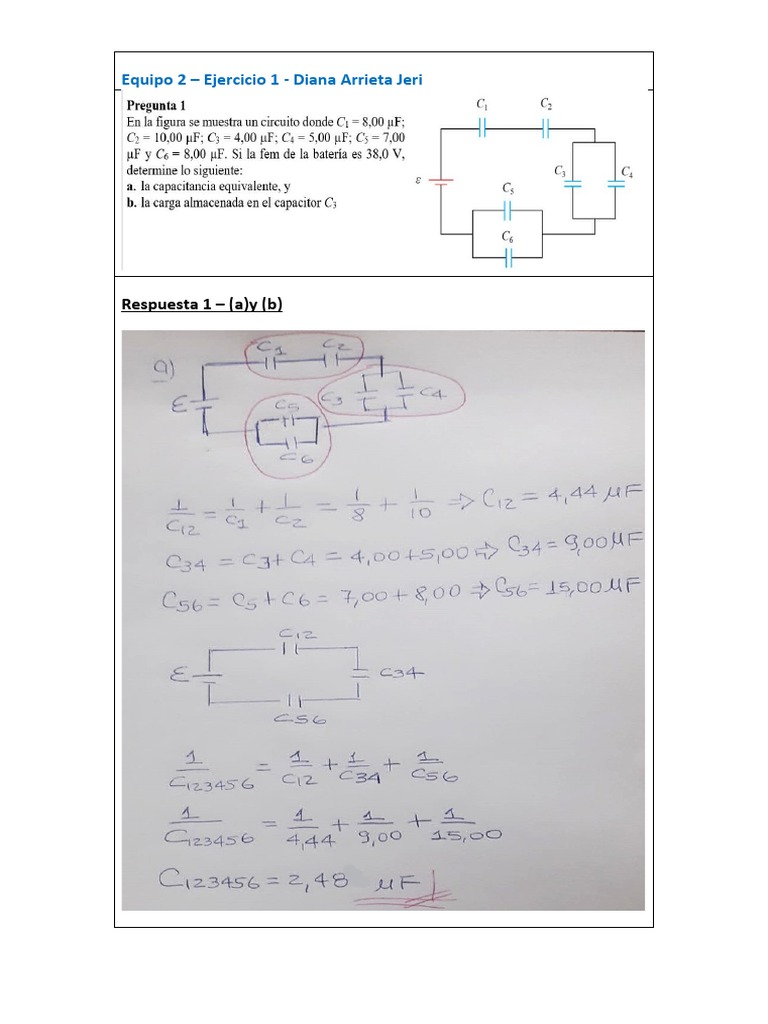 Equipo 2 – Ejercicio 1 - Diana Arrieta Jeri
Pregunta 1
En la figura se muestra un circuito donde C1 = 8,00 µF;
C2 = 10,00 µF; C3 = 4,00 µF; C4 = 5,00 µF; C5 = 7,00
µF y C6 = 8,00 µF. Si la fem de la batería es 38,0 V,
determine lo siguiente:
a. la capacitancia equivalente, y
b. la carga almacenada en el capacitor C3
C1 C2
C3 C4
ε C5
C6
Respuesta 1 – (a)y (b)
a)
C1 C2
ε C5 C3 C4
C6
1/C12 = 1/C1 + 1/C2 = 1/8 + 1/10 => C12 = 4,44 µF
C34 = C3 + C4 = 4,00 + 5,00 => C34 = 9,00 µF
C56 = C5 + C6 = 7,00 + 8,00 => C56 = 15,00 µF
C12
ε C34
C56
1/C123456 = 1/C12 + 1/C34 + 1/C56
1/C123456 = 1/4,44 + 1/9,00 + 1/15,00
C123456 = 2,48 µF